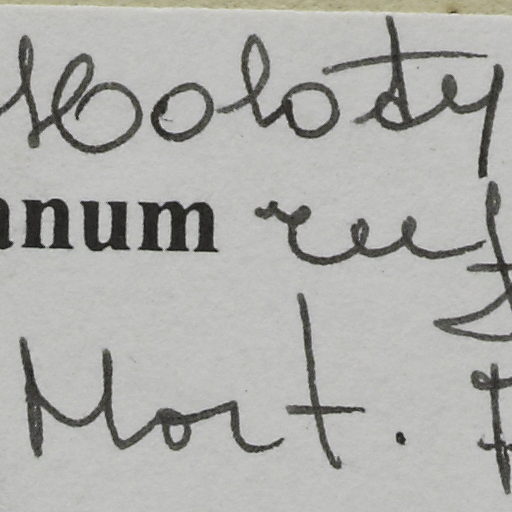 Holoty
anum ruf
Mort. F